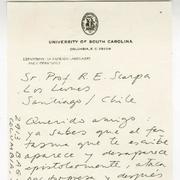 UNIVERSITY OF SOUTH CAROLINA
COLUMBIA, S. C. 29208
DEPARTMENT OF FOREIGN LANGUAGES
AND LITERATURES
Sr Prof R. E. Scarpa
Los Leones
Santiago / Chile
Querido amigo:
ya sabes que el fan
tasma que te escribe
aparece y desaparece
epistolarmente, ataca
por sorpresa y después